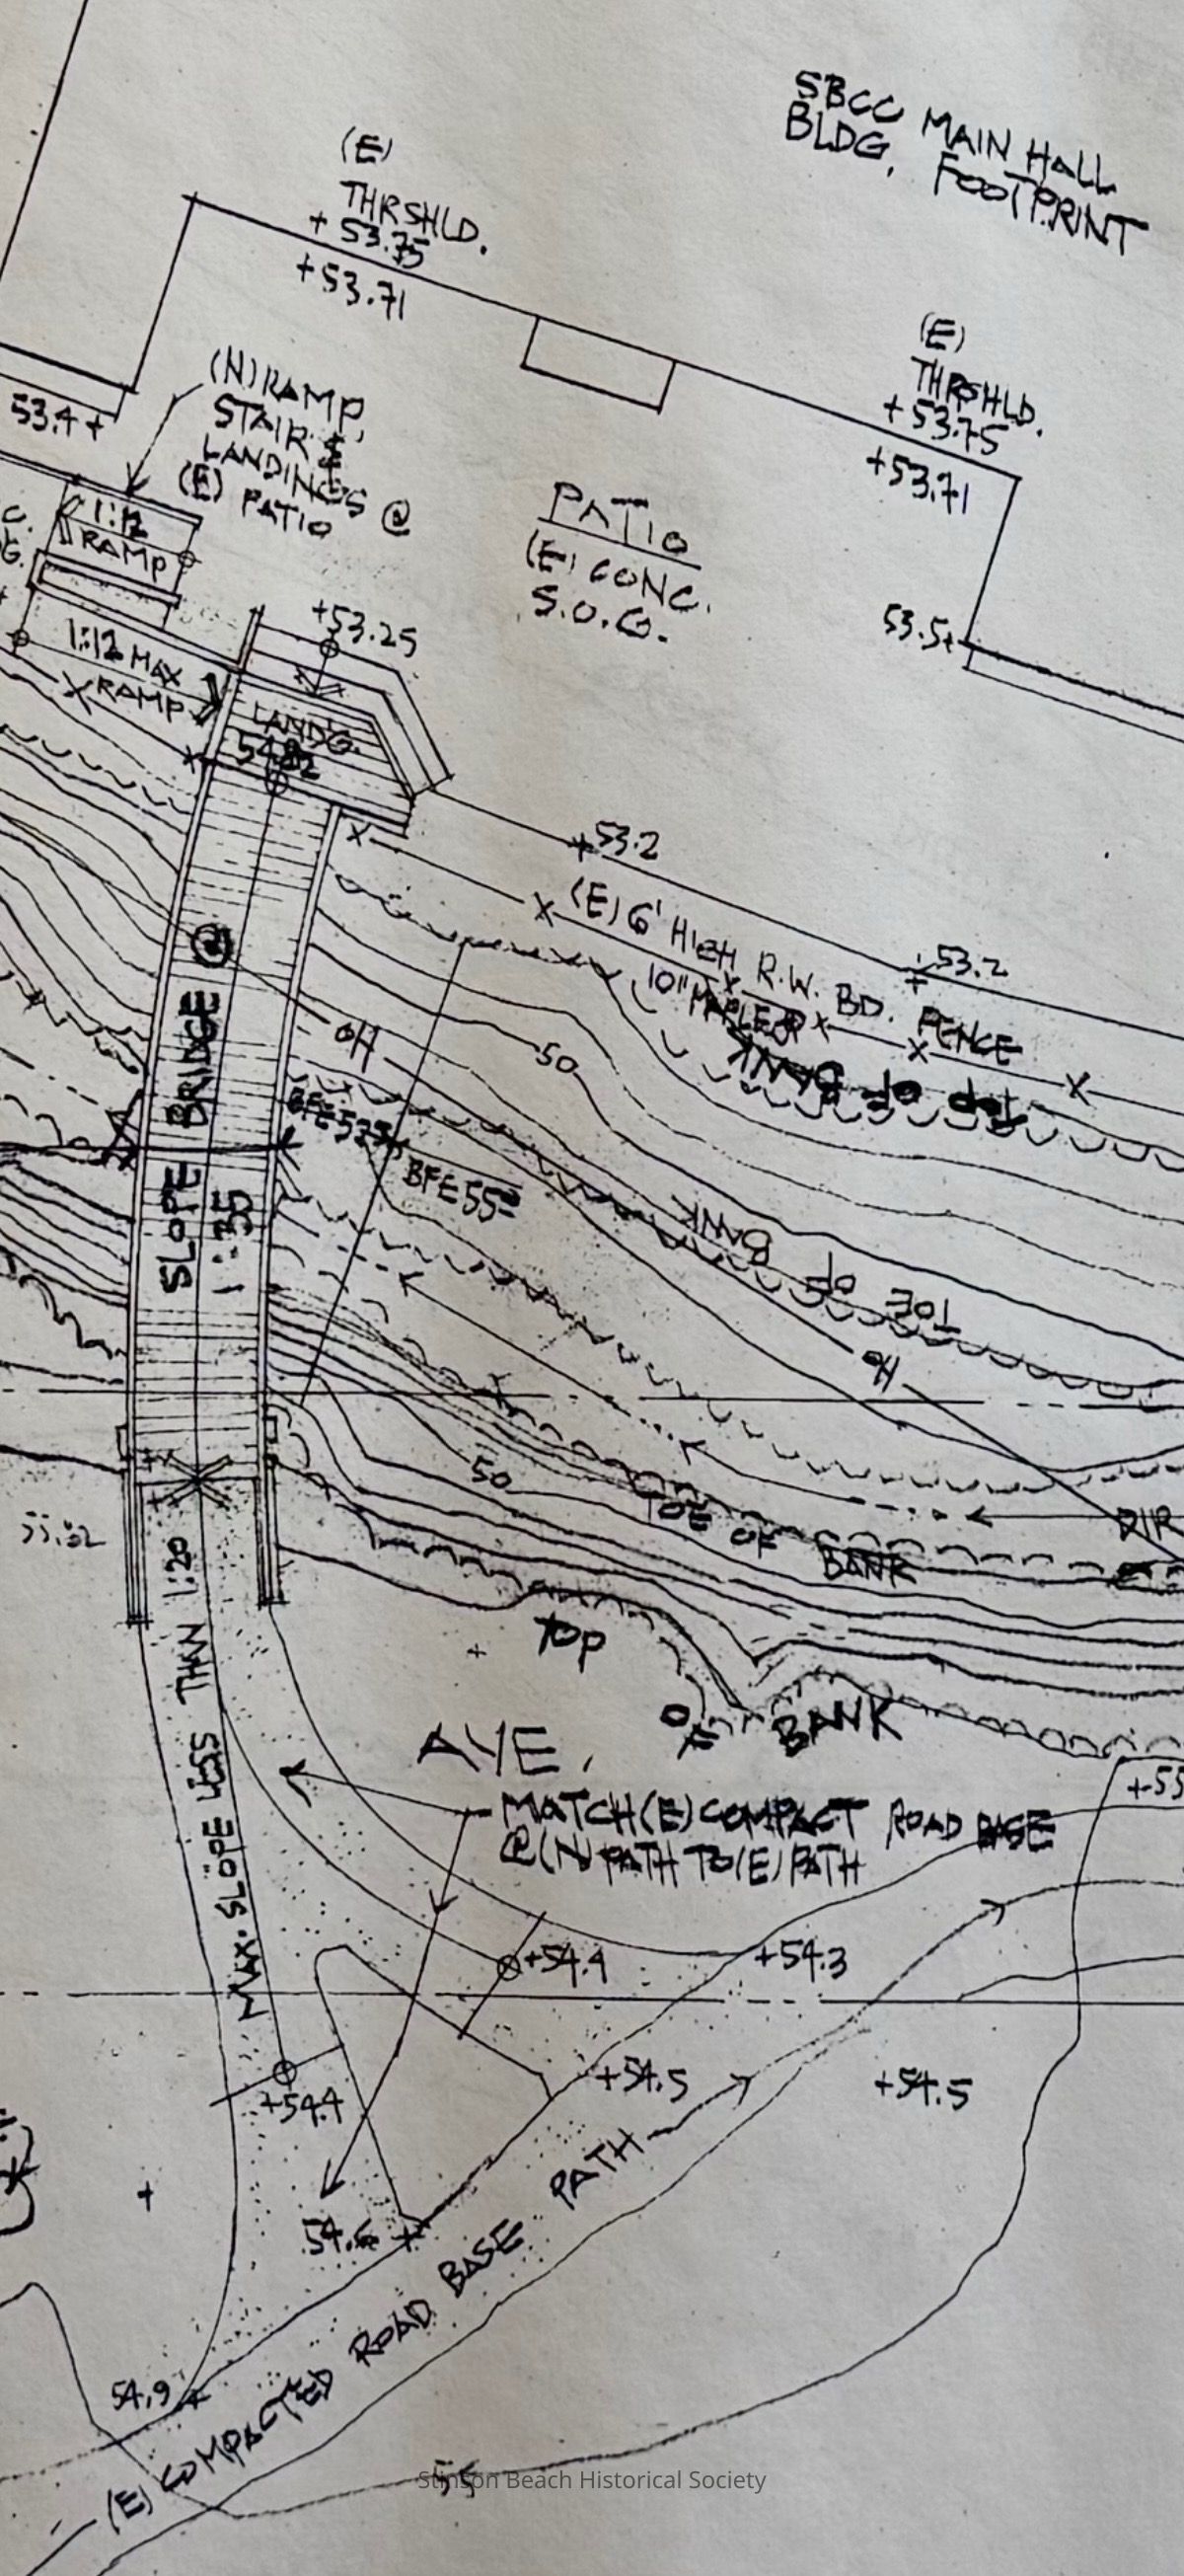 SBCC MAIN HALL
BLDG. FOOTPRINT
(E)
THRSHLD.
+53.75
+53.71
(E)
THRSHLD.
+53.75
+53.71
(N) RAMP,
STAIR &
LANDINGS @
(E) PATIO
53.4+
1:12
RAMP
PATIO
(E) CONC.
S.O.G.
+53.25
53.5+
1:12 MAX
RAMP
LANDG.
53.2
53.2
(E) 6' HIGH R.W. BD. FENCE
10" MAPLE
TOP OF BANK
BRIDGE @
SLOPE
1:35
OH
50
BFE 55
TOE OF BANK
OH
50
TOE OF BANK
DIR
TOP OF BANK
MAX. SLOPE LESS THAN 1:20
AVE.
MATCH (E) COMPACT ROAD BASE
@ (N) PATH TO (E) PATH
+55
+54.4
+54.3
+54.5
+54.5
+54.4
54.6
54.9
(E) COMPACTED ROAD BASE PATH
55
Stinson Beach Historical Society